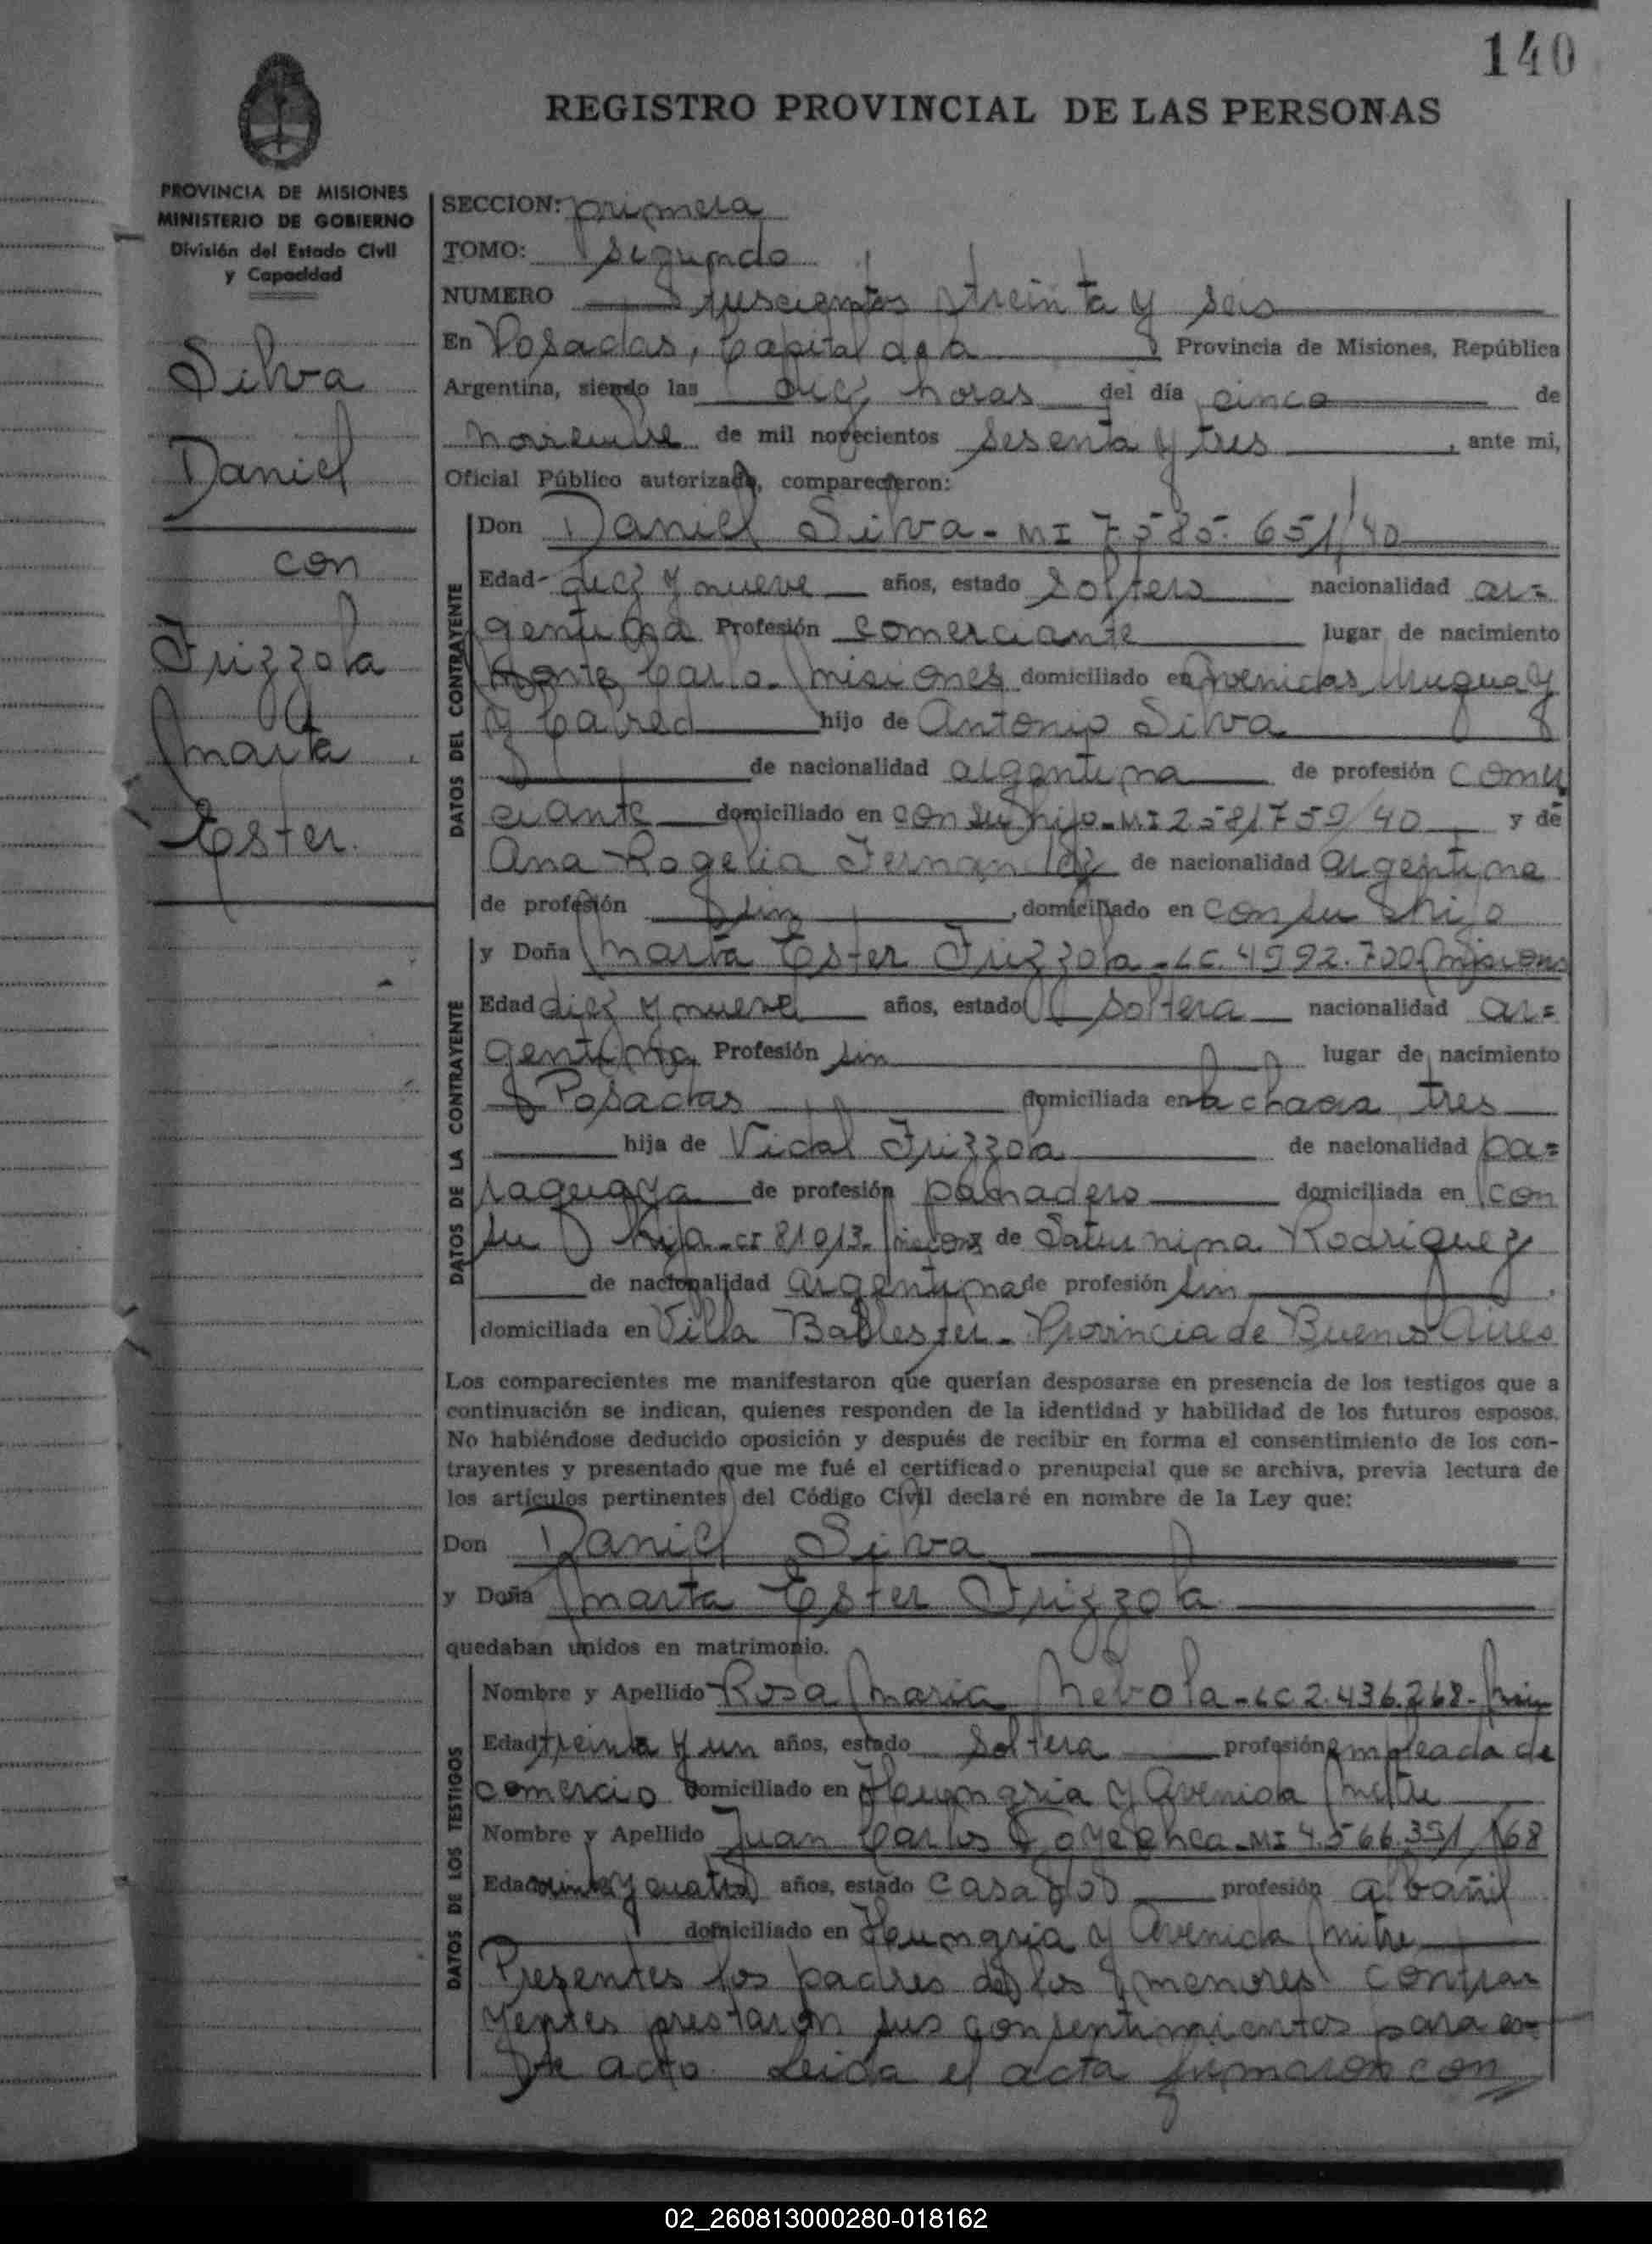 140
REGISTRO PROVINCIAL DE LAS PERSONAS
PROVINCIA DE MISIONES
MINISTERIO DE GOBIERNO
División del Estado Civil
y Capacidad
Silva
Daniel
con
Frizzola
Marta
Ester.
SECCION: primera
TOMO: segundo
NUMERO treinta y seis
En Posadas, Capital de la Provincia de Misiones, República
Argentina, siendo las diez horas del día cinco de
noviembre de mil novecientos sesenta y tres, ante mi,
Oficial Público autorizado, comparecieron:
DATOS DEL CONTRAYENTE
Don Daniel Silva - MI 7.585.651/40
Edad diez y nueve años, estado soltero nacionalidad ar=
gentina Profesión comerciante lugar de nacimiento
Monte Carlo - Misiones domiciliado en Avenidas Uruguay
y Cabred hijo de Antonio Silva
de nacionalidad argentina de profesión comer
ciante domiciliado en con su hijo - MI 2581759/40 y de
Ana Rogelia Fernandez de nacionalidad argentina
de profesión sin, domiciliado en con su hijo
DATOS DE LA CONTRAYENTE
y Doña Marta Ester Frizzola - LC. 4992.700 Misiones
Edad diez y nueve años, estado soltera nacionalidad ar=
gentina Profesión sin lugar de nacimiento
Posadas domiciliada en la chacra tres
hija de Vidal Frizzola de nacionalidad pa=
raguaya de profesión panadero domiciliada en con
su hija - CI 81913 - de Saturnina Rodriguez
de nacionalidad argentina de profesión sin
domiciliada en Villa Ballester - Provincia de Buenos Aires
Los comparecientes me manifestaron que querían desposarse en presencia de los testigos que a
continuación se indican, quienes responden de la identidad y habilidad de los futuros esposos.
No habiéndose deducido oposición y después de recibir en forma el consentimiento de los con-
trayentes y presentado que me fué el certificado prenupcial que se archiva, previa lectura de
los artículos pertinentes del Código Civil declaré en nombre de la Ley que:
Don Daniel Silva
y Doña Marta Ester Frizzola
quedaban unidos en matrimonio.
DATOS DE LOS TESTIGOS
Nombre y Apellido Rosa Maria - LC 2.436.268 -
Edad treinta y un años, estado soltera profesión empleada de
comercio domiciliado en Hungria y Avenida Mitre
Nombre y Apellido Juan Carlos Goyechea - MI 4.566.351/68
Edad y cuatro años, estado casado profesión albañil
domiciliado en Hungria y Avenida Mitre
Presentes los padres de los menores contra=
yentes prestaron sus consentimientos para es=
te acto. Leida el acta firmaron con
02_260813000280-018162